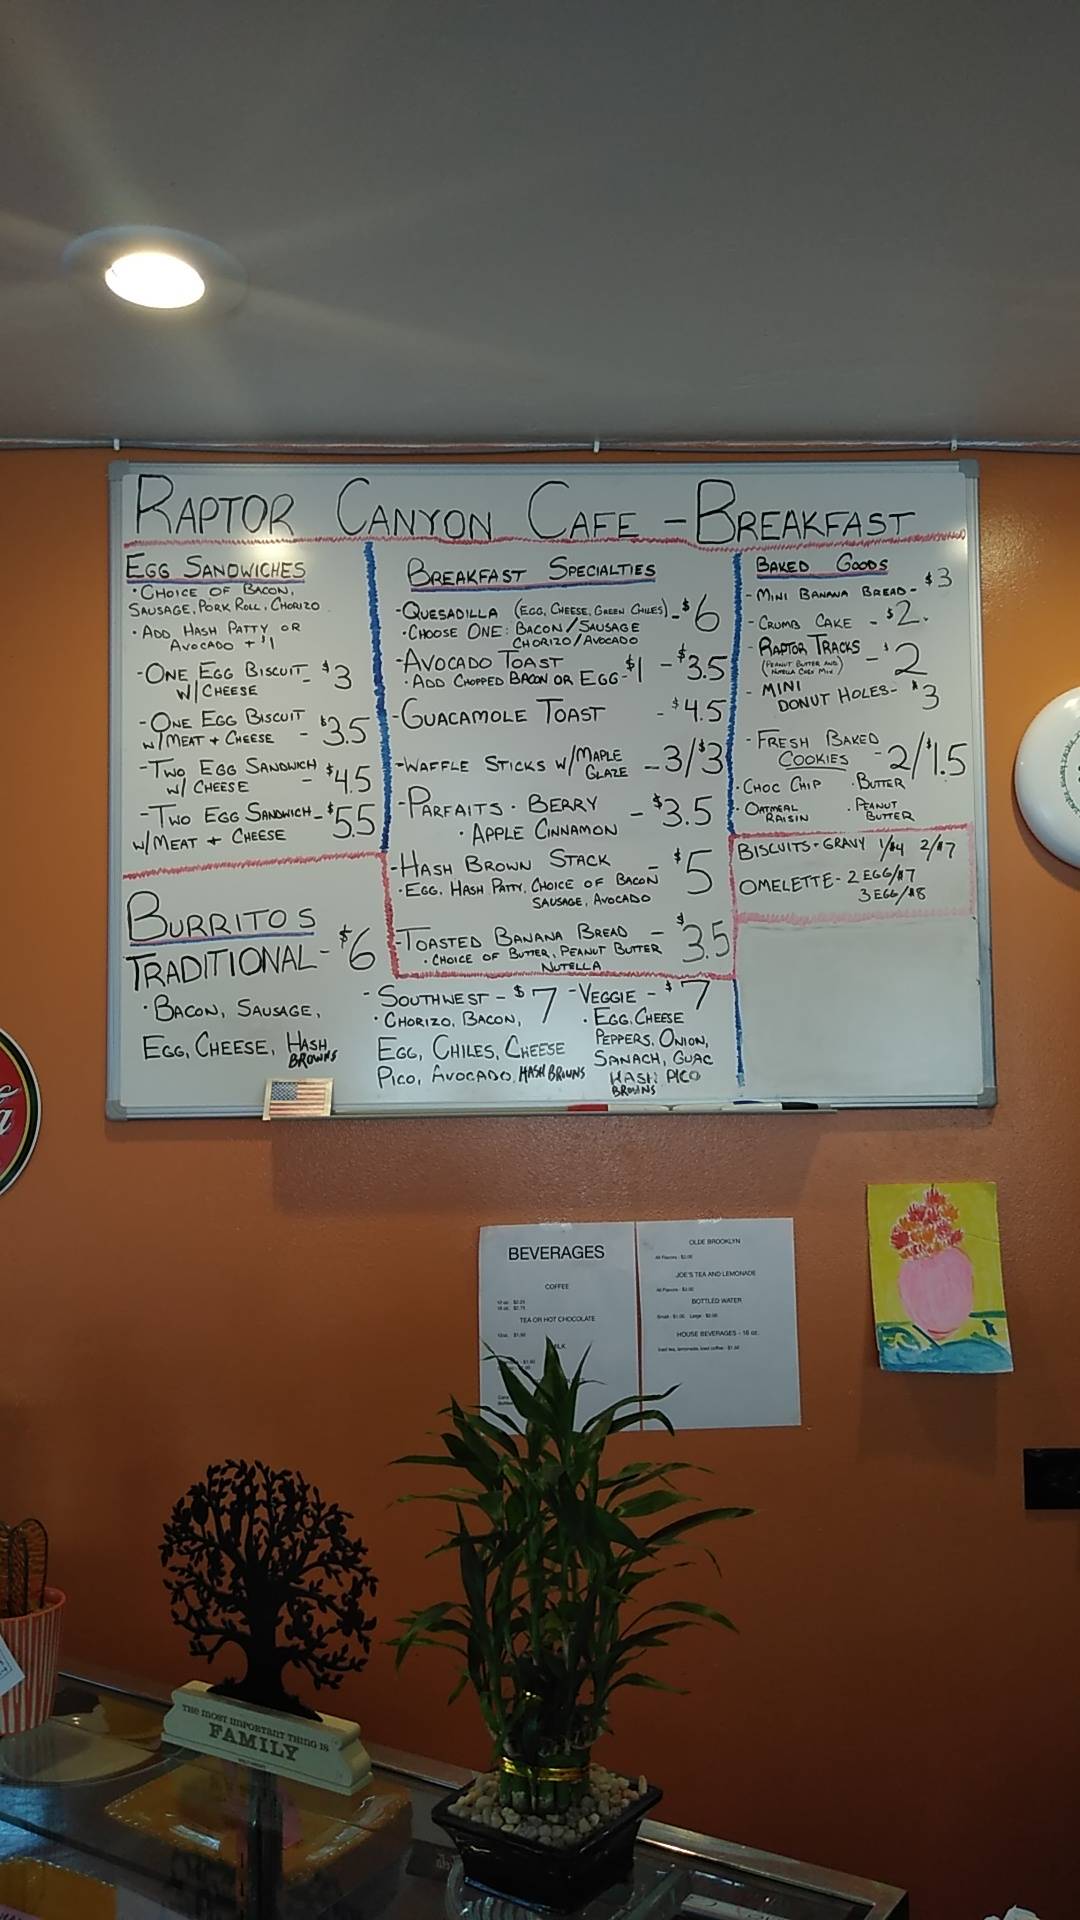 RAPTOR CANYON CAFE - BREAKFAST
EGG SANDWICHES
· CHOICE OF BACON,
SAUSAGE, PORK ROLL, CHORIZO
· ADD HASH PATTY OR
AVOCADO + $1
- ONE EGG BISCUIT - $3
W/ CHEESE
- ONE EGG BISCUIT
W/ MEAT + CHEESE - $3.5
- TWO EGG SANDWICH
W/ CHEESE - $4.5
- TWO EGG SANDWICH - $5.5
W/ MEAT + CHEESE
BREAKFAST SPECIALTIES
- QUESADILLA (EGG, CHEESE, GREEN CHILES) - $6
· CHOOSE ONE: BACON/SAUSAGE
CHORIZO/AVOCADO
- AVOCADO TOAST - $3.5
· ADD CHOPPED BACON OR EGG - $1
- GUACAMOLE TOAST - $4.5
- WAFFLE STICKS W/ MAPLE
GLAZE - 3/$3
- PARFAITS · BERRY - $3.5
· APPLE CINNAMON
- HASH BROWN STACK - $5
· EGG, HASH PATTY, CHOICE OF BACON
SAUSAGE, AVOCADO
- TOASTED BANANA BREAD - $3.5
· CHOICE OF BUTTER, PEANUT BUTTER
NUTELLA
BAKED GOODS
- MINI BANANA BREAD - $3
- CRUMB CAKE - $2.
- RAPTOR TRACKS - $2
(PEANUT BUTTER AND
NUTELLA CHEX MIX)
- MINI
DONUT HOLES - $3
- FRESH BAKED
COOKIES - 2/$1.5
· CHOC CHIP · BUTTER
· OATMEAL
RAISIN
· PEANUT
BUTTER
BISCUITS + GRAVY 1/$4 2/$7
OMELETTE - 2 EGG/$7
3 EGG/$8
BURRITOS
TRADITIONAL - $6
· BACON, SAUSAGE,
EGG, CHEESE, HASH
BROWNS
- SOUTHWEST - $7
· CHORIZO, BACON,
EGG, CHILES, CHEESE
PICO, AVOCADO, HASH BROWNS
- VEGGIE - $7
· EGG, CHEESE
PEPPERS, ONION,
SANACH, GUAC
HASH PICO
BROWNS
BEVERAGES
COFFEE
12 oz. $2.25
16 oz. $2.75
TEA OR HOT CHOCOLATE
12oz. $1.50
OLDE BROOKLYN
All Flavors - $2.00
JOE'S TEA AND LEMONADE
All Flavors - $2.00
BOTTLED WATER
Small - $1.00 Large - $2.00
HOUSE BEVERAGES - 16 oz.
Iced tea, lemonade, iced coffee - $1.50
THE MOST IMPORTANT THING IS
FAMILY